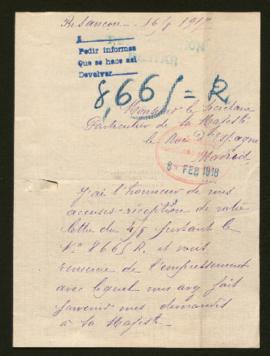 Besançon 16/1 1918
A
Pedir informes
Que se hace así
Devolver
8,665 = R.
Monsieur le Secrétaire
Particulier de Sa Majesté
le Roi d'Espagne
Madrid
8 FEB 1918
J'ai l'honneur de vous
accuser réception de votre
lettre du 4/1 portant le
N° 8665 R. et vous
remercie de l'empressement
avec lequel vous avez fait
parvenir mes demandes
à Sa Majesté.